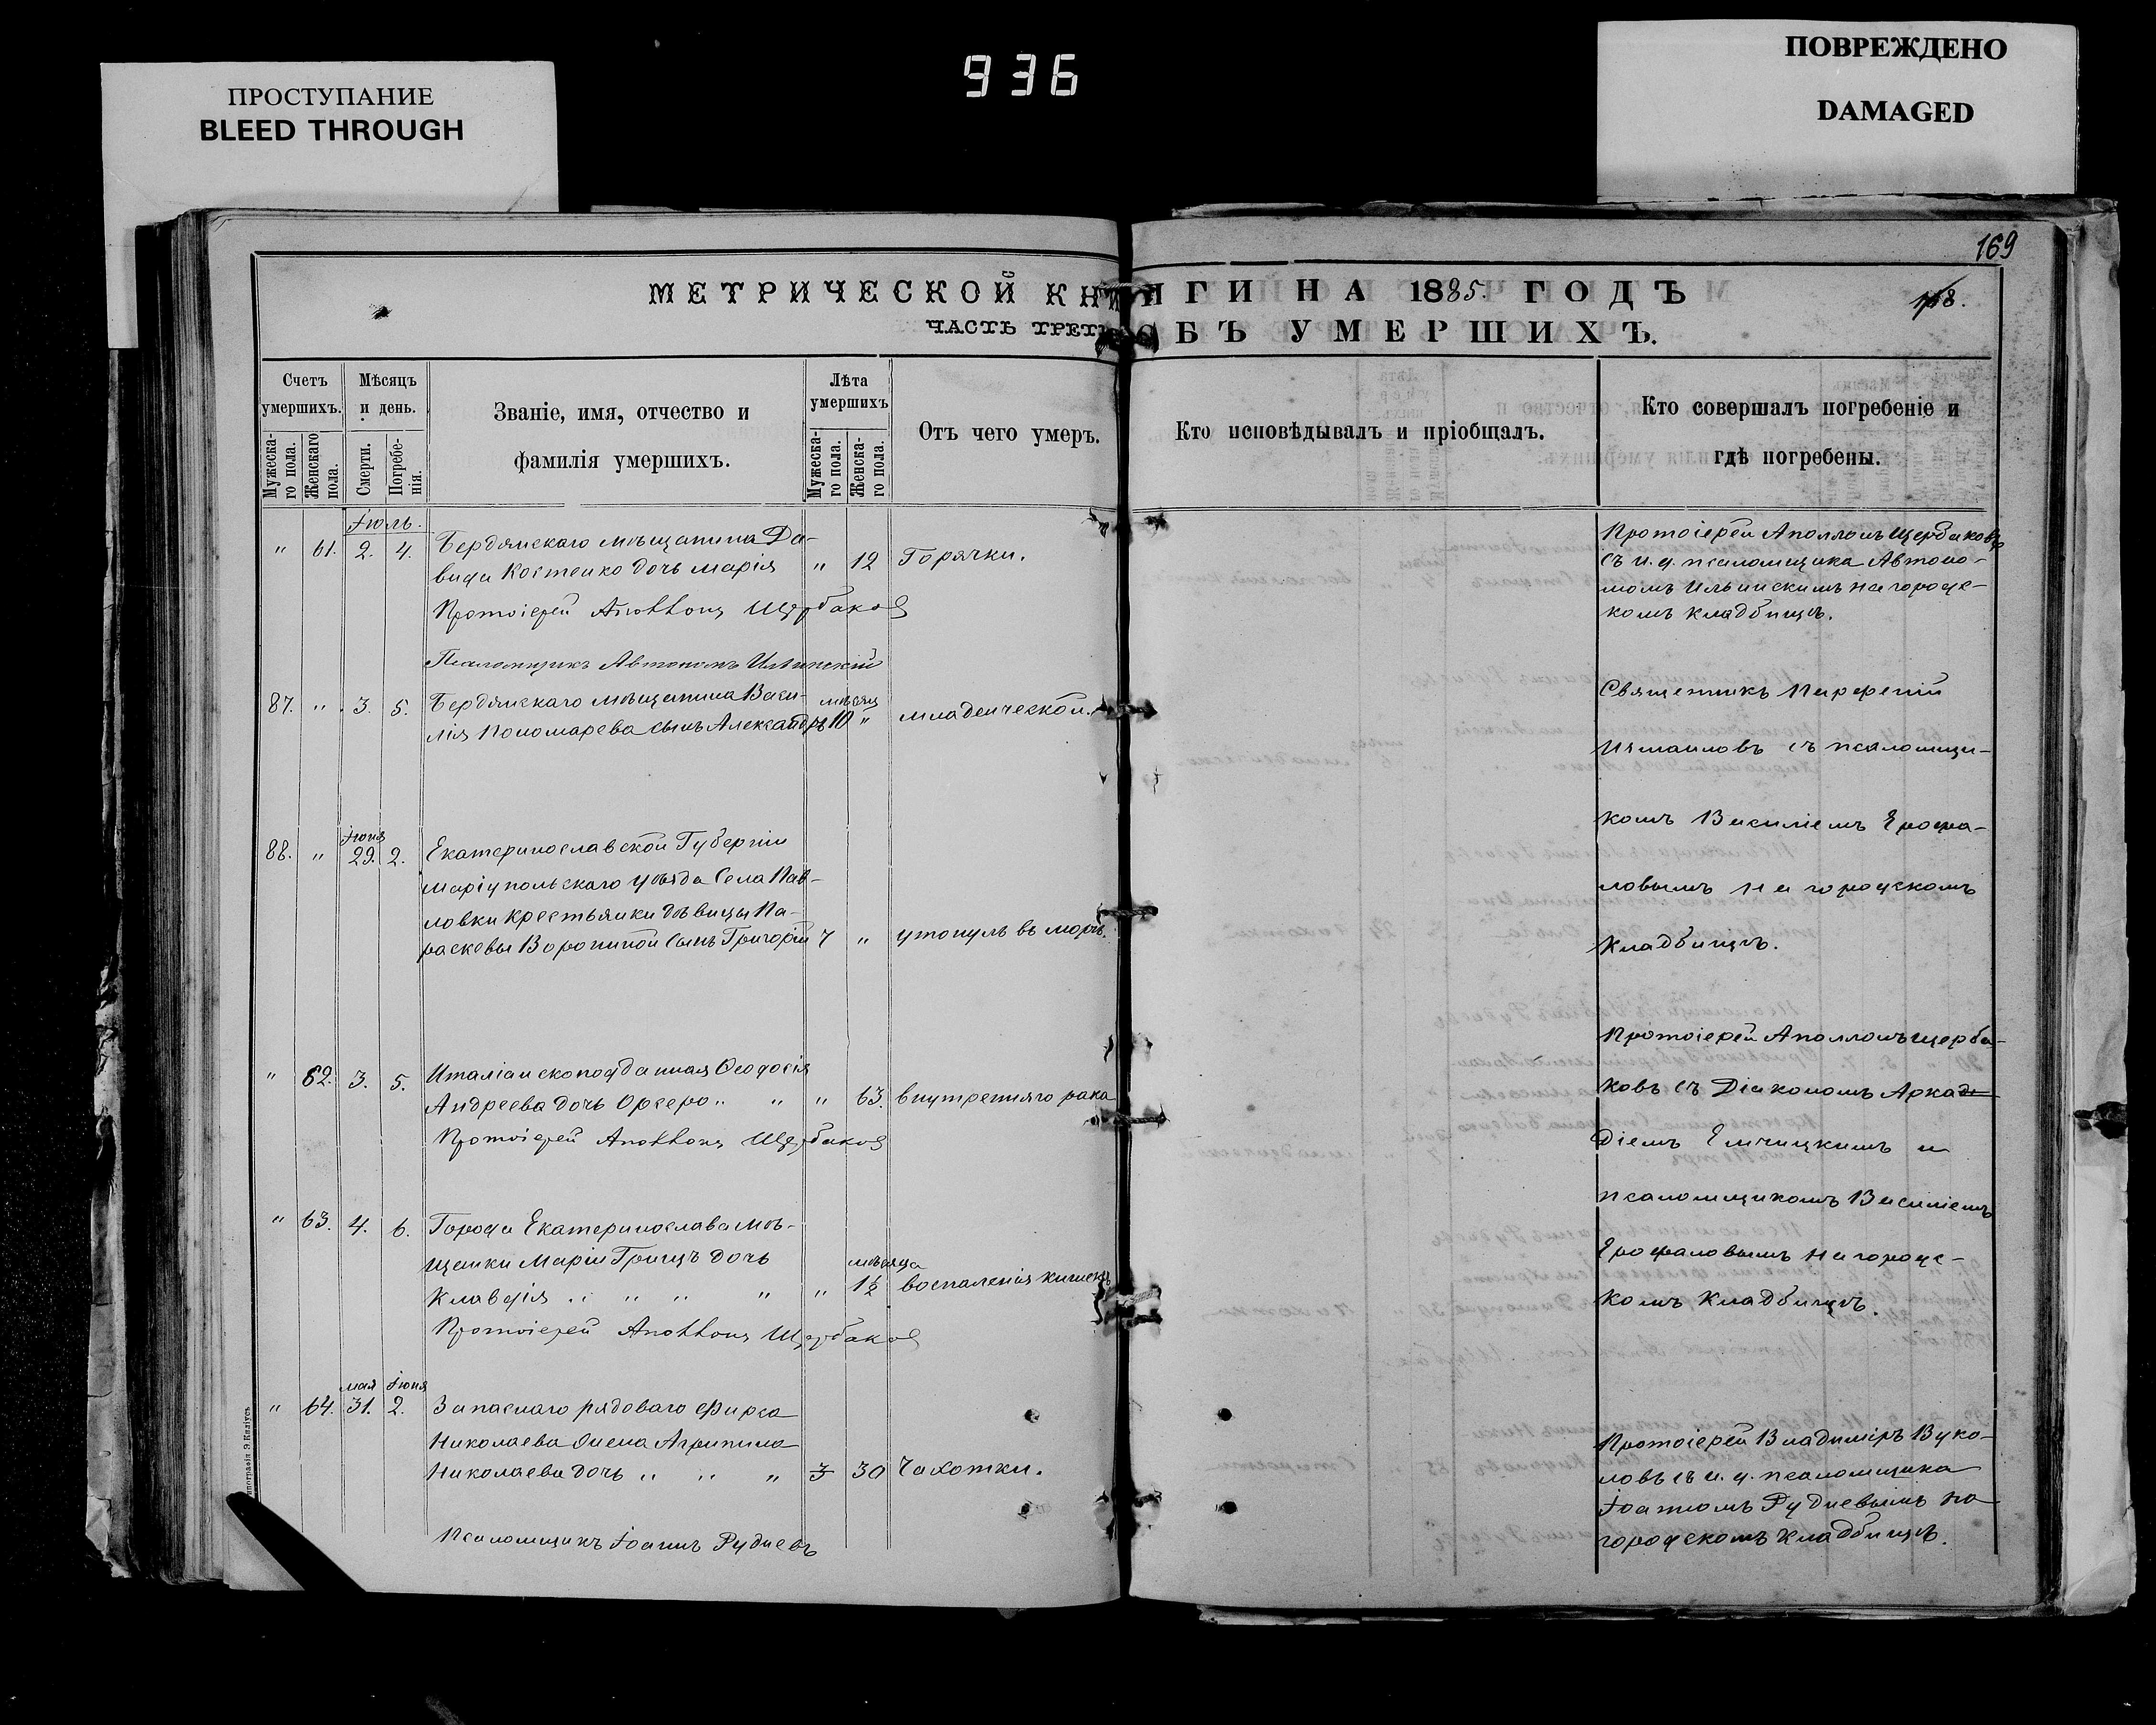 936
ПРОСТУПАНИЕ
BLEED THROUGH
ПОВРЕЖДЕНО
DAMAGED
169
МЕТРИЧЕСКОЙ КНИГИ НА 1885. ГОДЪ
158.
ЧАСТЬ ТРЕТЬЯ ОБЪ УМЕРШИХЪ.
Счетъ умершихъ.
Мужеска-го пола.
Женскаго пола.
Мѣсяцъ и день.
Смерти.
Погребе-нія.
Званіе, имя, отчество и
фамилія умершихъ.
Лѣта умершихъ
Мужеска-го пола.
Женска-го пола.
Отъ чего умеръ.
Кто исповѣдывалъ и пріобщалъ.
Кто совершалъ погребеніе и
гдѣ погребены.
Іюль.
" 61. 2. 4. Бердянскаго мѣщанина Да-
вида Костенко дочь Марія " 12 Горячки.
Протоіерей Аполлонъ Щербаковъ
Псаломщикъ Автономъ Ильинскій
Протоіерей Аполлонъ Щербаковъ
съ и. д. псаломщика Автоно-
момъ Ильинскимъ на городс-
комъ кладбищѣ.
87. " 3. 5. Бердянскаго мѣщанина Васи- мѣсяц
лія Пономарева сынъ Александръ 10 " младенческой.
Священникъ Парфеній
Измаиловъ съ псаломщи-
комъ Василіемъ Ерофа-
ловымъ на городскомъ
кладбищѣ.
Іюня
88. " 29. 2. Екатеринославской Губерніи
Маріупольскаго уѣзда Села Пав-
ловки крестьянки дѣвицы Па-
раскевы Ворониной сынъ Григорій 7 " утонулъ въ морѣ.
" 62. 3. 5. Италіанскоподданная Ѳеодосія
Андреева дочь Орсеро " " " 63. внутренняго рака
Протоіерей Аполлонъ Щербаковъ
Протоіерей Аполлонъ Щерба-
ковъ съ Діакономъ Аркад
діемъ Елчицкимъ и
псаломщикомъ Василіемъ
Ерофаловымъ на городс-
комъ кладбищѣ.
" 63. 4. 6. Города Екатеринослава мѣ-
щанки Маріи Грицъ дочь мѣсяца
Клавдія " " " " " 1½ воспаленія кишекъ
Протоіерей Аполлонъ Щербаковъ
мая Іюня
" 64. 31. 2. Запаснаго рядоваго Фирса
Николаева жена Агрипина
Николаева дочь " " " 3 30 Чахотки.
Псаломщикъ Іоаннъ Рудневъ
Протоіерей Владиміръ Вуко-
ловъ съ и. д. псаломщика
Іоанномъ Рудневымъ на
городскомъ кладбищѣ.